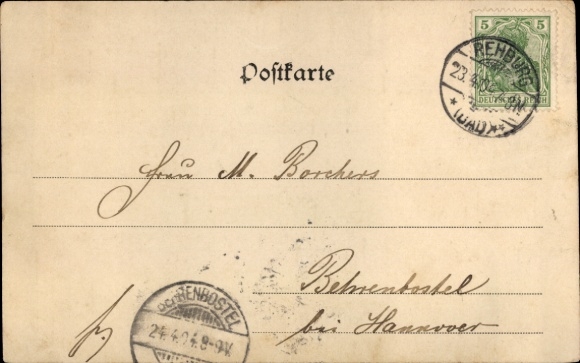 5 5
DEUTSCHES REICH
REHBURG
23.4.02
(BAD)
Postkarte
Frau M. Borchers
Behrenbostel
bei Hannover
fr.
BEHRENBOSTEL
24.4.02 8-9V.